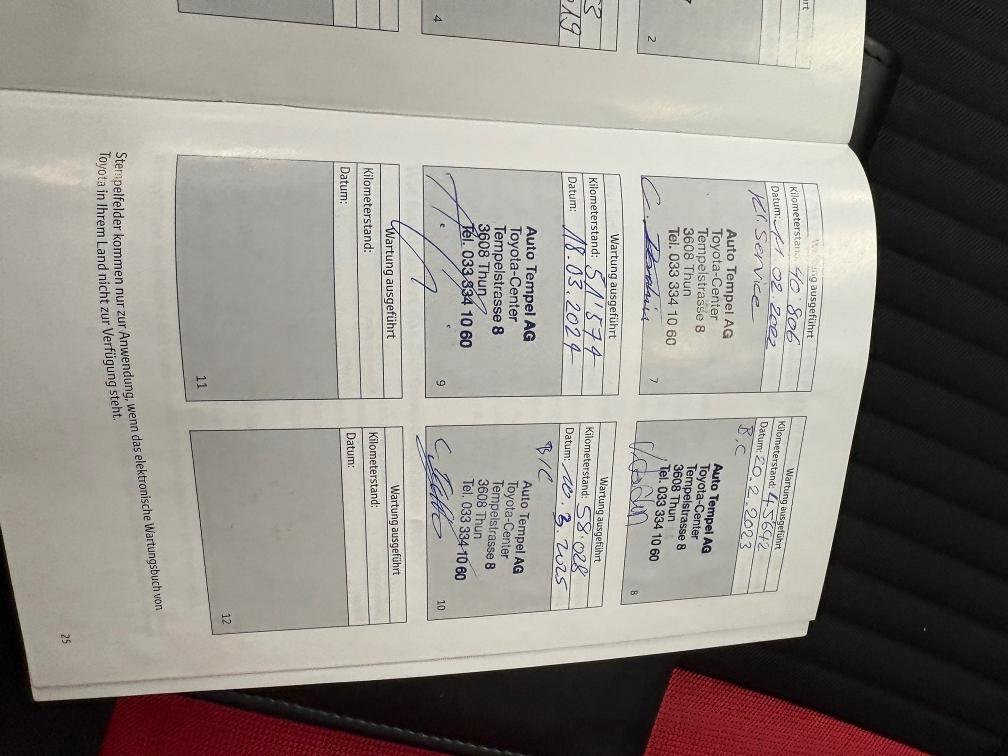 2
4
19
Wartung ausgeführt
Kilometerstand: 40 806
Datum: 11.02.2022
Kl. Service
Auto Tempel AG
Toyota-Center
Tempelstrasse 8
3608 Thun
Tel. 033 334 10 60
7
Wartung ausgeführt
Kilometerstand: 45642
Datum: 20.2.2023
B/C
Auto Tempel AG
Toyota-Center
Tempelstrasse 8
3608 Thun
Tel. 033 334 10 60
8
Wartung ausgeführt
Kilometerstand: 51'574
Datum: 18.03.2024
Auto Tempel AG
Toyota-Center
Tempelstrasse 8
3608 Thun
Tel. 033 334 10 60
9
Wartung ausgeführt
Kilometerstand: 58.028
Datum: 10.3.2025
B/C
Auto Tempel AG
Toyota-Center
Tempelstrasse 8
3608 Thun
Tel. 033 334 10 60
10
Wartung ausgeführt
Kilometerstand:
Datum:
11
Wartung ausgeführt
Kilometerstand:
Datum:
12
Stempelfelder kommen nur zur Anwendung, wenn das elektronische Wartungsbuch von
Toyota in Ihrem Land nicht zur Verfügung steht.
25